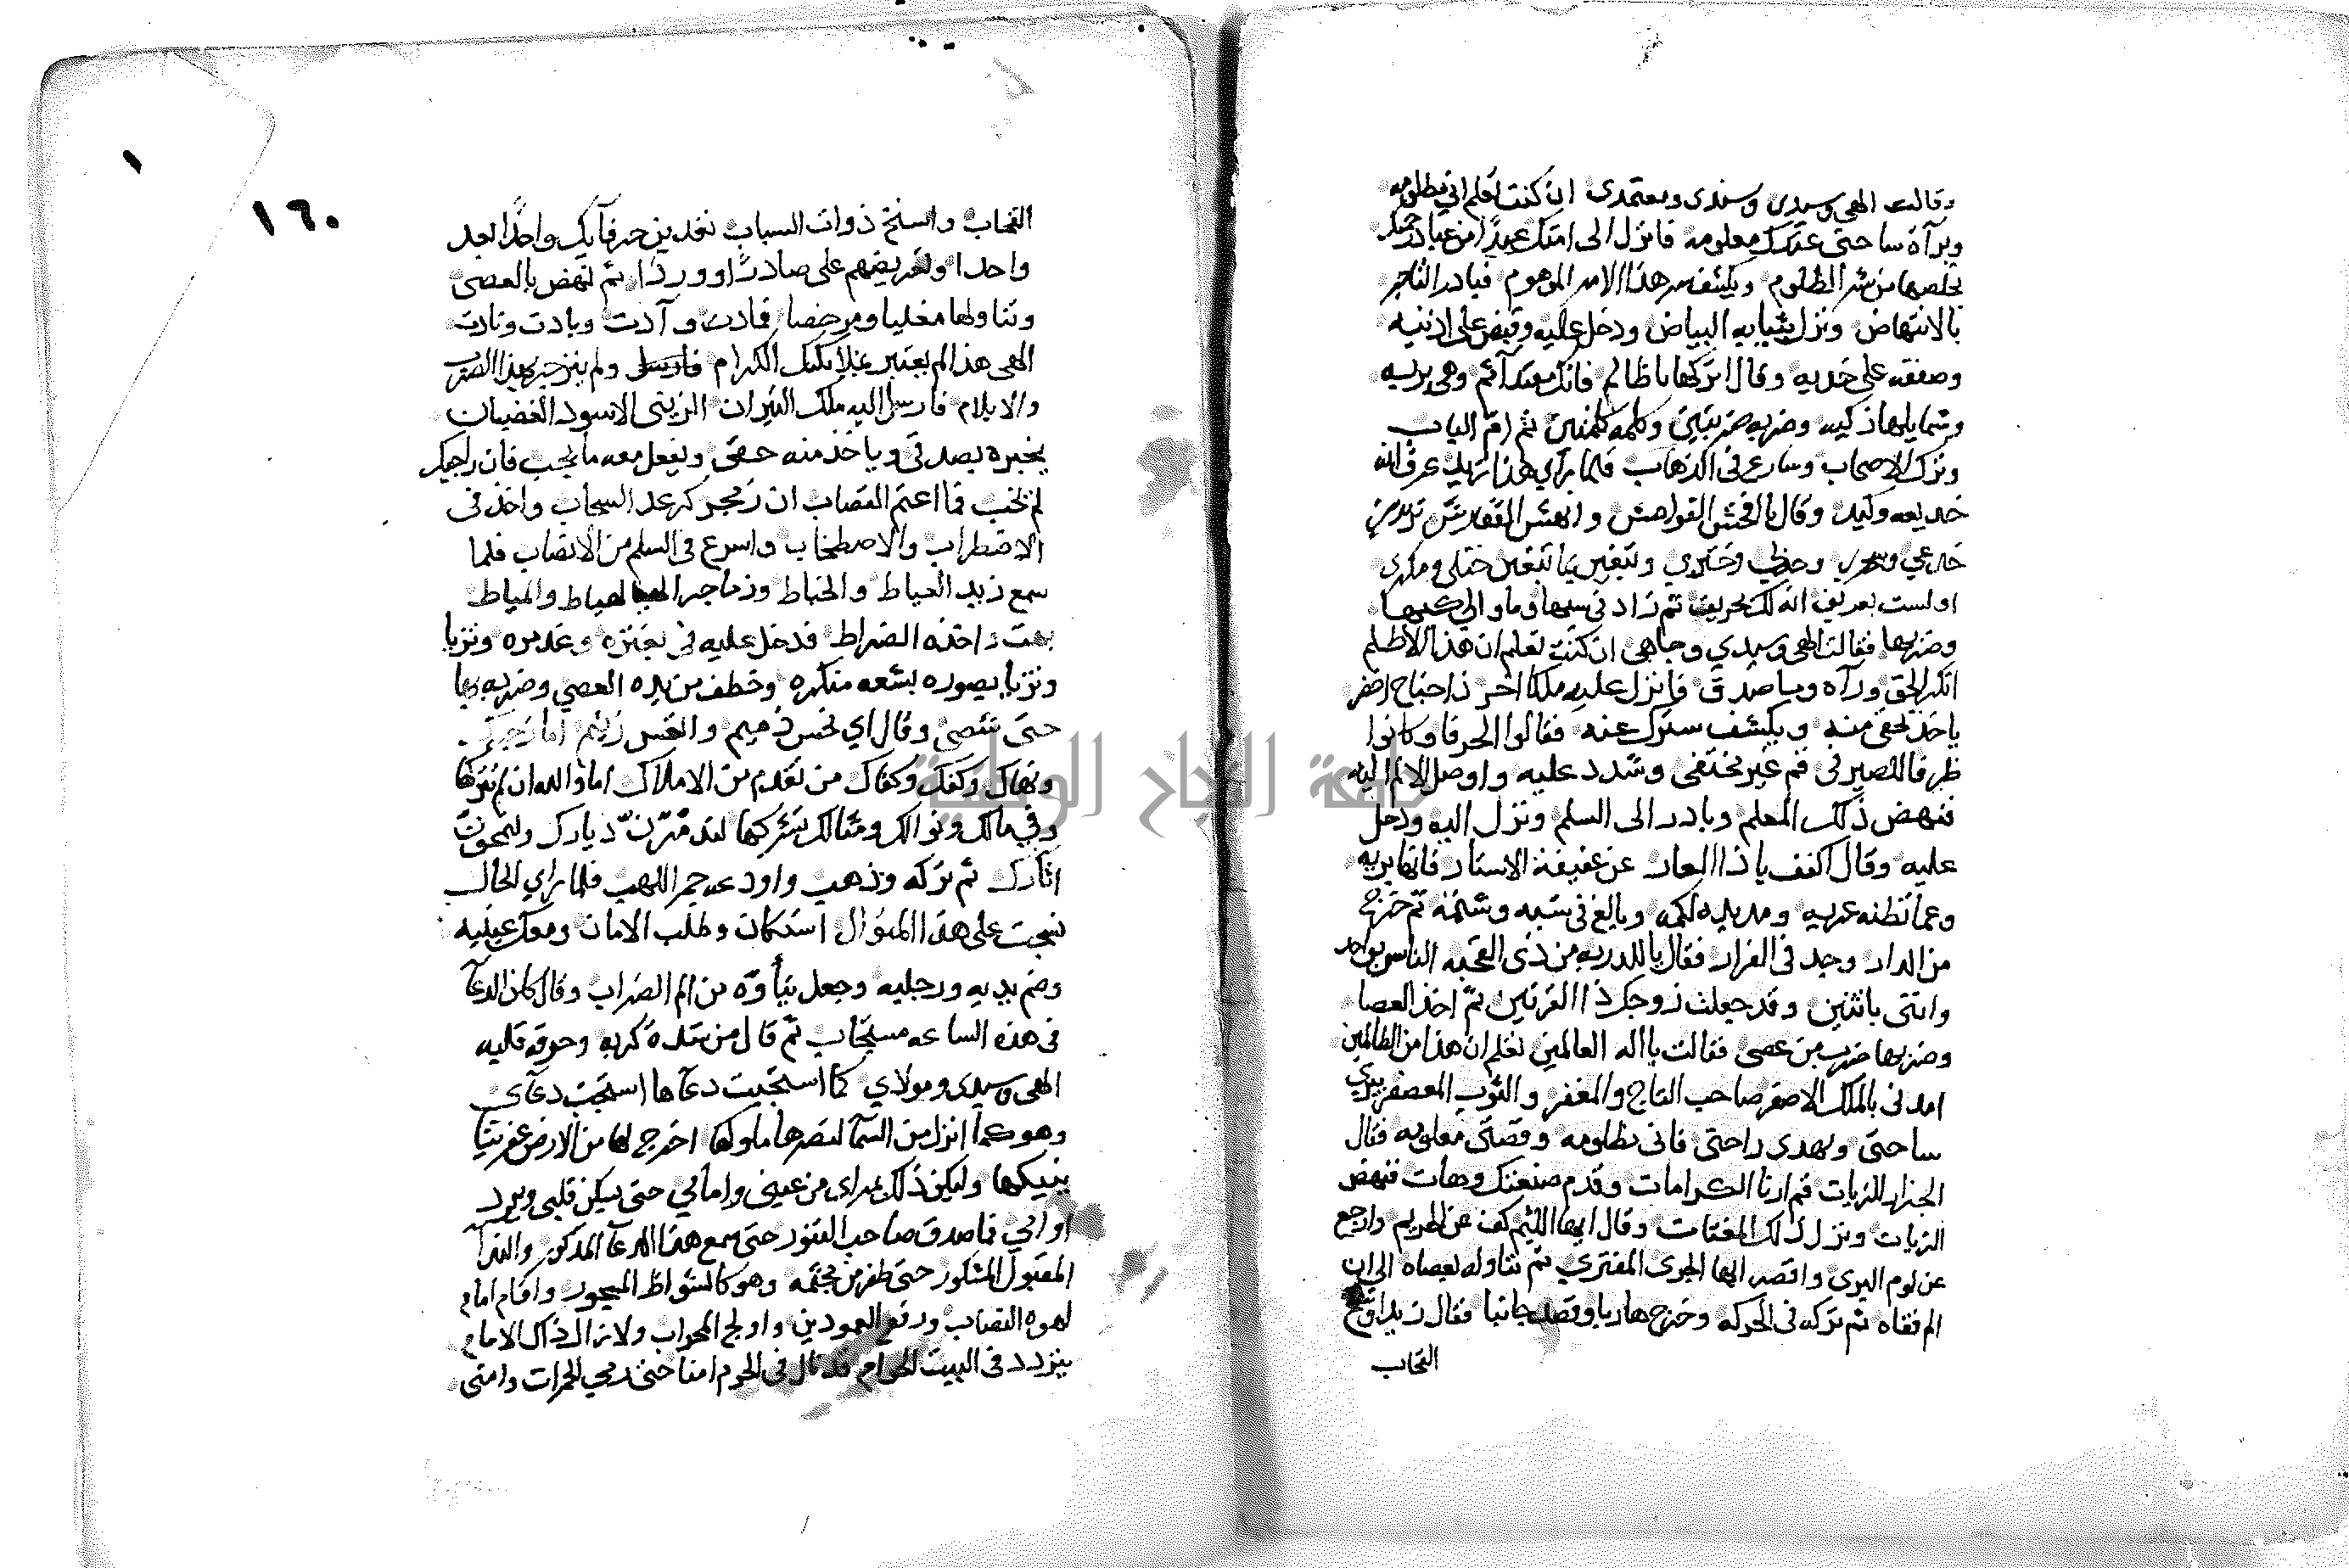 وقالت الهي وسيدي وسندي ومعتمدي ان كنت تعلم اني مظلومه
وبرآة ساحتي عندك معلومه فانزل الى امتك عبدًا من عبادك
يخلصها من شر الظلوم ويكشف سر هذا الامر الموهوم فبادر التاجر
بالانتهاض ونزل بثيابه البياض ودخل عليه وقبض على اذنيه
وصفقه على خديه وقال اتركها يا ظالم فانك معتد آثم وهي بريه
وضربه ضربتين وكلمه كلمتين ثم ام الباب
وترك الاصحاب وسارع في الذهاب فلما راي هذا عرف انه
خديعه وكيد وقال
خدعي وتبغين ختلى ومكري
اولست بعريف انه لك لحريف ثم زاد في سبها
وضربها فقالت الهي وسيدي وجاهي ان كنت تعلم ان هذا الاظلم
انكر الحق ورآه وما صدق فانزل عليه ملكا اخر ذا جناح اخضر
ياخذ لحقي منه ويكشف سترك عنه فقالوا الحرفا وكانوا
ظرفا للصيرفي قم غير مختفي وشدد عليه واوصل الالم اليه
فنهض ذلك المعلم وبادر الى السلم ونزل اليه ودخل
عليه وقال اكفف يا ذا العار عن عفيفة الاستار فانها بريه
وعما تظنه عريه ومد يده لكمه وبالغ في سبه وشتمه ثم خرج
من الدار وجد في الفرار فقال من ذي القحبه الناس بواحد
وانتي باثنين وقد جعلت زوجك ذا القرنين ثم اخذ العصا
وضربها ضرب من عصى فقالت يا اله العالمين تعلم ان هذا من الظالمين
امدني بالملك الاصفر صاحب التاج والمغفر والثوب المعصفر يبري
ساحتي ويهدي راحتي فاني مظلومه وقصتي معلومه فقال
الجزار للزيات قم ارنا الكرامات وقدم صنعتك وهات فنهض
الزيات ونزل لذلك المفتات وقال ايها اللئيم كف عن الحريم وارجع
عن لوم البري واقصر ايها الجري المفتري ثم تناوله بعصاه الى ان
الم قفاه ثم تركه في الحركه وخرج هاربا وقصد جانبا فقال زيد اوقح
القحاب
١٦٠
القحاب واسنخ ذوات السباب تعدين حرفآيك واحدًا بعد
واحدا وتعريضهم على صادرًا ووردا ثم نهض بالعصى
وتناولها مغليا ومرخصا فمادت وآدت وبادت ونادت
الهي هذا لم يعتبر بملايكتك الكرام ولم ينزجر بهذا الضرب
والايلام فارسل اليه ملك النيران الزيتي الاسود الغضبان
يخبره بصدقي وياخذ منه حقي ويفعل معه ما يجب فان راجيك
لم يخب فما اعتم القصاب ان زمجر كرعد السحاب واخذ في
الاضطراب والاصطخاب واسرع في السلم من الانصاب فلما
سمع زيد العياط والخباط وزماجر الهياط والمياط
بهت واخذه الضراط فدخل عليه في
بصوره بشعه منكره وخطف من يده العصي وضربه بها
حتى وقال اي نحس ذميم والعس زنيم اما
ونهاك وكفك وكفاك من تقدم من الاملاك اما والله ان لم تتركها
وفي مالك ونوالك ومثالك تشركها لندمرنّ ديارك ولنمحونّ
اثارك ثم تركه وذهب واودعه جمر اللهب فلما راي الحال
نسجت على هذا المنوال استكان وطلب الامان ومعك عينيه
وضم يديه ورجليه وجعل يتأوّه من الم الضراب وقال كان الدعآ
في هذه الساعه مستجاب ثم قال من شدة كربه وحرقه قلبه
الهي وسيدي ومولاي كما استجبت دعآها استجب دعآي
وهو كما انزل من السمآ لنصرها ملوكا اخرج لها من الارض عفريتا
ينيكها وليكن ذلك بمراي من عيني وامامي حتى يسكن قلبي ويبرد
اوامي فما صدق صاحب التنور حتى سمع هذا الدعآ المذكور والندآ
المقبول المشكور حتى طفر من مجثمه وهو كالشواظ المسجور واقام امام
لهوه النصاب ورفع العمودين واولج المحراب ولازال ذاك الامام
يتردد في البيت الحرام في الحرم امنا حتى رمي الجمرات وامنى
جامعة النجاح الوطنية